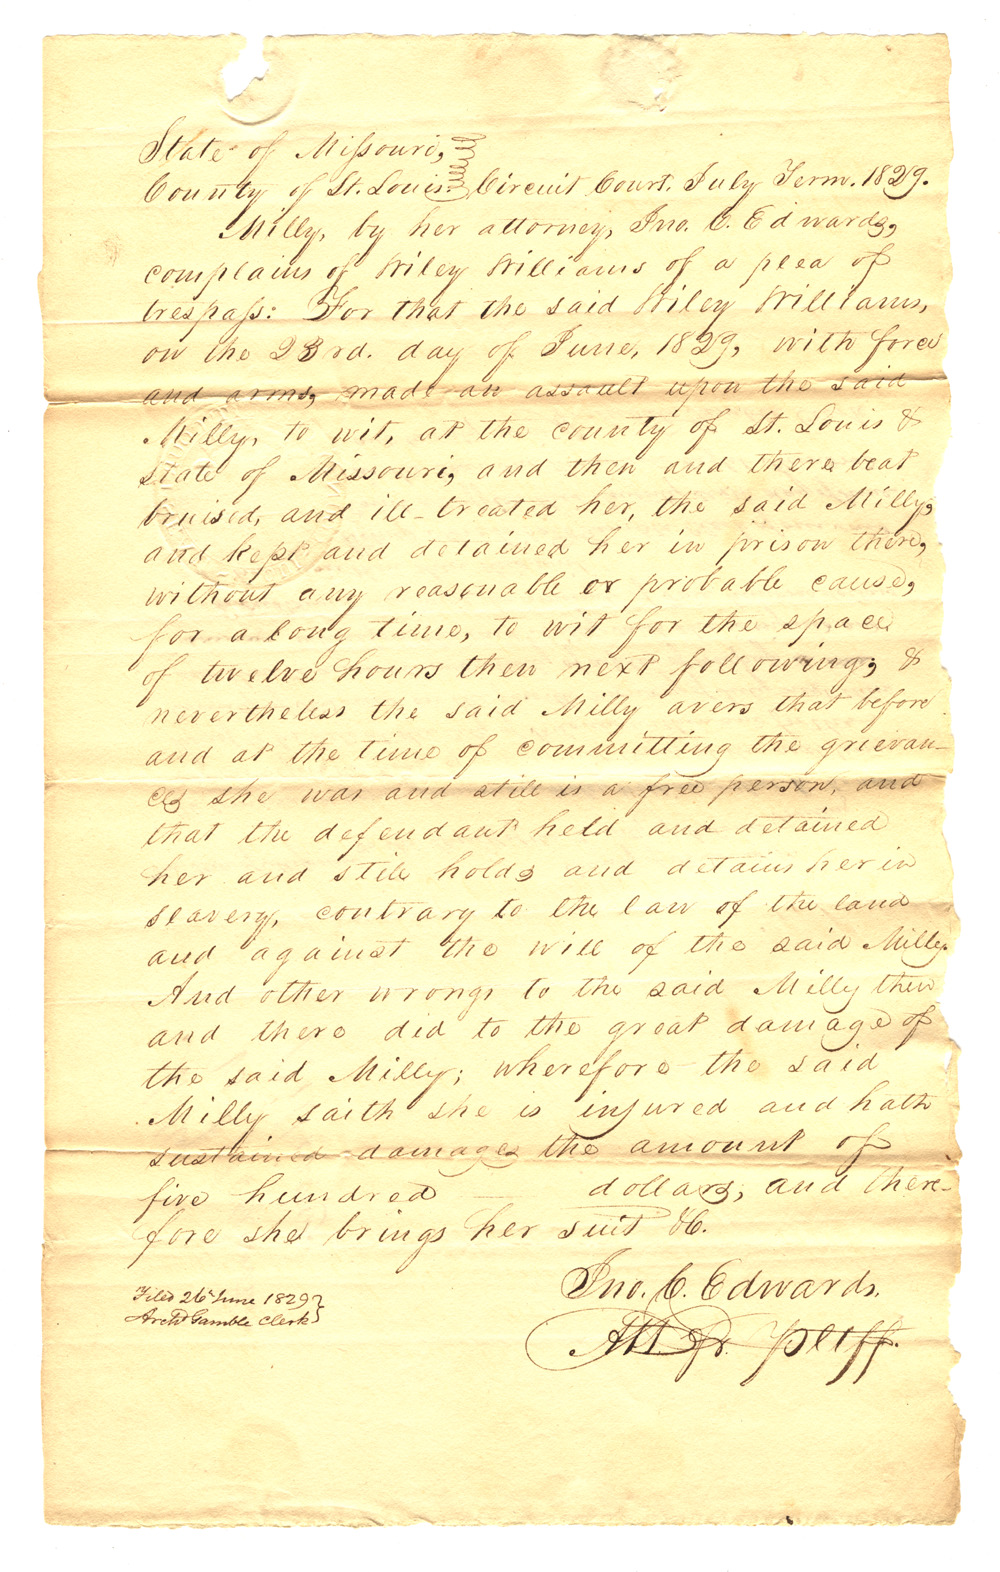 State of Missouri,
County of St. Louis. Circuit Court. July Term. 1829.
Milly, by her attorney, Jno. C. Edwards,
complains of Wiley Williams of a plea of
trespass: For that the said Wiley Williams,
on the 23rd. day of June, 1829, with force
and arms, made an assault upon the said
Milly, to wit, at the county of St. Louis &
state of Missouri, and then and there beat
bruised, and ill-treated her, the said Milly,
and kept and detained her in prison there,
without any reasonable or probable cause,
for a long time, to wit for the space
of twelve hours then next following; &
nevertheless the said Milly avers that before
and at the time of committing the grievan-
ces she was and still is a free person, and
that the defendant held and detained
her and still holds and detains her in
slavery, contrary to the law of the land
and against the will of the said Milly.
And other wrongs to the said Milly then
and there did to the great damage of
the said Milly; wherefore the said
Milly saith she is injured and hath
sustained damages the amount of
five hundred dollars, and there-
fore she brings her suit &c.
Jno. C. Edwards.
Att. for Pltff.
Filed 26 June 1829
Archd Gamble Clerk